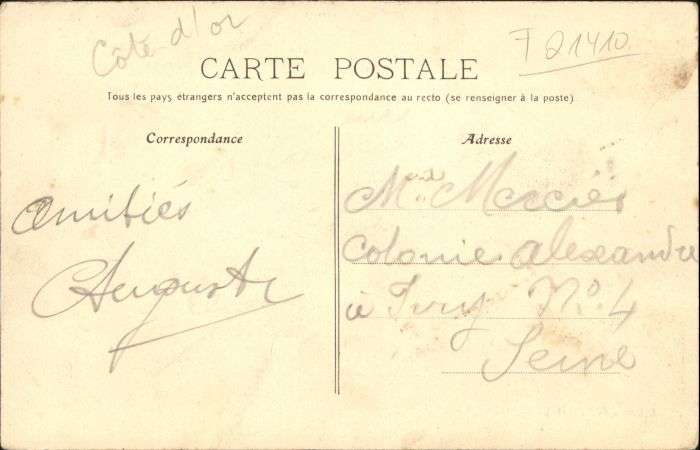 Côte d'or
F 21410
CARTE POSTALE
Tous les pays étrangers n'acceptent pas la correspondance au recto (se renseigner à la poste)
Correspondance
Adresse
amitiés
Auguste
Mercier
Colonie alexandre
à Ivry No. 4
Seine